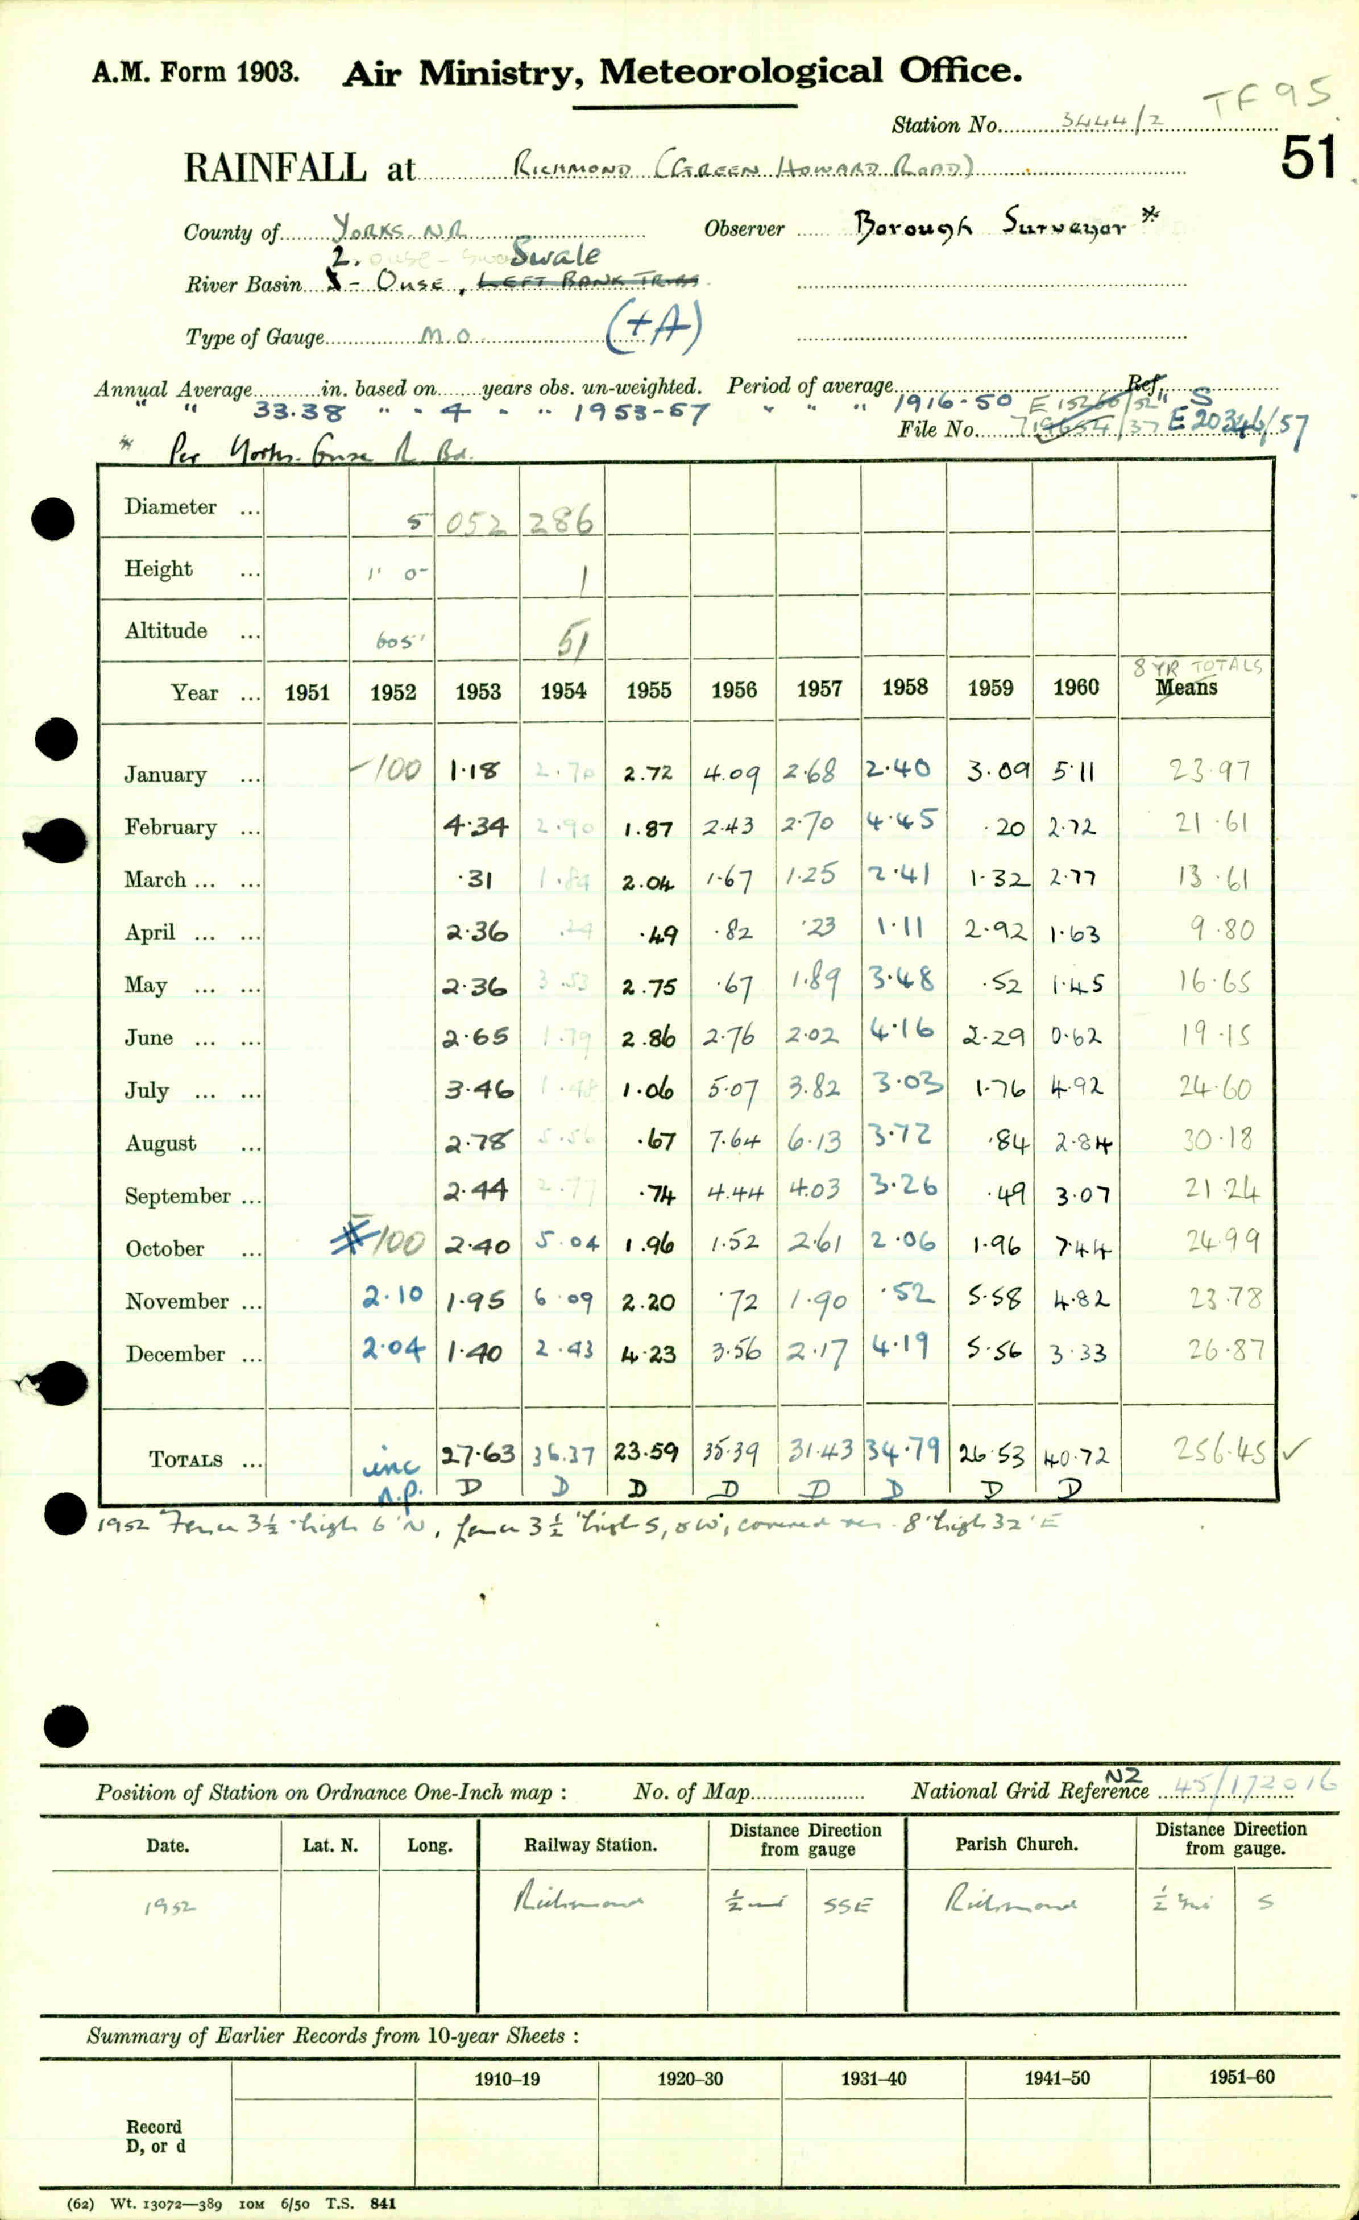 A.M. Form 1903. Air Ministry, Meteorological Office.
TF 95
Station No. 3444/2
51
RAINFALL at RICHMOND (GREEN HOWARD ROAD)
County of YORKS. N.R. Observer Borough Surveyor *
2. Ouse - Swale
River Basin - OUSE, LEFT BANK TRIBS
Type of Gauge M.O. (+A)
Annual Average in. based on years obs. un-weighted. Period of average Ref.
" " 33.38 " - 4 - " 1953-57 " " " 1916-50 E 15266/52 " S
File No. 719654/37 E 20346/57
* Per Yorks. Ouse R. Bd.
Diameter ... 5 052 286
Height ... 1' 0" 1
Altitude ... 605' 51
8 YR TOTALS
Year ... 1951 1952 1953 1954 1955 1956 1957 1958 1959 1960 Means
January ... -100 1.18 2.70 2.72 4.09 2.68 2.40 3.09 5.11 23.97
February ... 4.34 2.90 1.87 2.43 2.70 4.45 .20 2.72 21.61
March ... ... .31 1.84 2.04 1.67 1.25 2.41 1.32 2.77 13.61
April ... ... 2.36 .24 .49 .82 .23 1.11 2.92 1.63 9.80
May ... ... 2.36 3.53 2.75 .67 1.89 3.48 .52 1.45 16.65
June ... ... 2.65 1.79 2.86 2.76 2.02 4.16 2.29 0.62 19.15
July ... ... 3.46 1.48 1.06 5.07 3.82 3.03 1.76 4.92 24.60
August ... 2.78 5.56 .67 7.64 6.13 3.72 .84 2.84 30.18
September ... 2.44 2.77 .74 4.44 4.03 3.26 .49 3.07 21.24
October ... 100 2.40 5.04 1.96 1.52 2.61 2.06 1.96 7.44 24.99
November ... 2.10 1.95 6.09 2.20 .72 1.90 .52 5.58 4.82 23.78
December ... 2.04 1.40 2.43 4.23 3.56 2.17 4.19 5.56 3.33 26.87
TOTALS ... inc 27.63 36.37 23.59 35.39 31.43 34.79 26.53 40.72 256.45 ✓
n.p. D D D D D D D D
1952 Fence 3½' high 6' N, fence 3½' high S, & W, covered res. 8' high 32' E
Position of Station on Ordnance One-Inch map : No. of Map National Grid Reference NZ 45/172016
Date. Lat. N. Long. Railway Station. Distance Direction from gauge Parish Church. Distance Direction from gauge.
1952 Richmond ½ mi SSE Richmond ½ mi S
Summary of Earlier Records from 10-year Sheets :
1910–19 1920–30 1931–40 1941–50 1951–60
Record
D, or d
(62) Wt. 13072—389 10M 6/50 T.S. 841